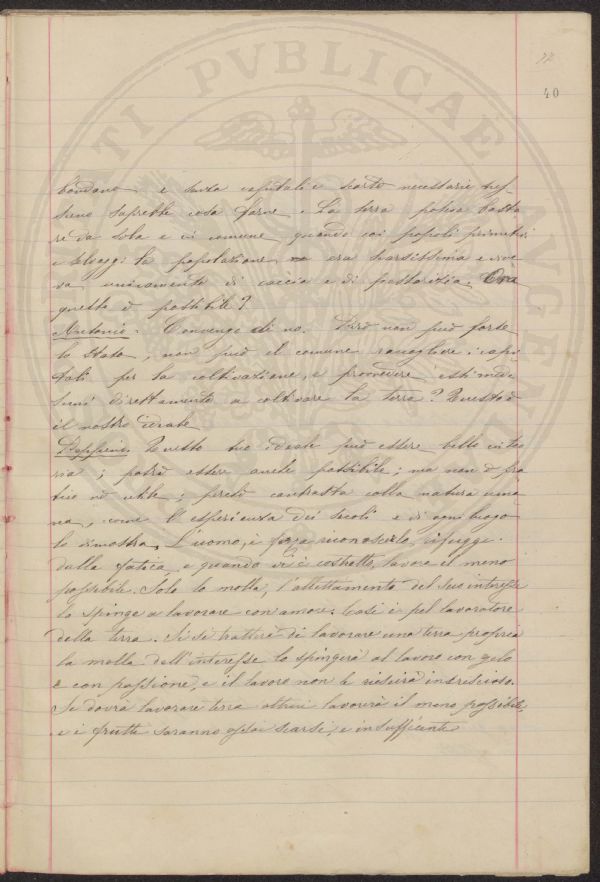 40
e senza capitali e scorte necessarie nes-
suno saprebbe cosa farne. La terra poteva basta
re da sola e in comune quando coi popoli primitivi
e selvaggi la popolazione era scarsissima e vive
va unicamente di caccia e di pastorizia. Ora
questo è possibile?
Antonio: Convengo di no. Però non può forse
lo Stato, non può il comune raccogliere i capi
tali per la coltivazione, e provvedere esti mede
simi direttamente a coltivare la terra? Questo è
il nostro ideale
Questo tuo ideale può essere bello in teo
ria; potrà essere anche possibile; ma non è pra
tico nè utile; perchè contrasta colla natura uma
na, come l'esperienza dei secoli e di ogni luogo
lo dimostra. L'uomo, è forza riconoscerlo, rifugge
dalla fatica, e quando vi è costretto, lavora il meno
possibile. Solo la molla, l'allettamento del suo interesse
lo spinge a lavorare con amore. Così è pel lavoratore
della terra. Se si tratterà di lavorare una terra propria
la molla dell'interesse lo spingerà al lavoro con zelo
e con passione, e il lavoro non le riescirà increscioso.
Se dovrà lavorare terra altrui lavorerà il meno possibile,
e i frutti saranno assai scarsi, e insufficienti
TI PVBLICAE AVGEND